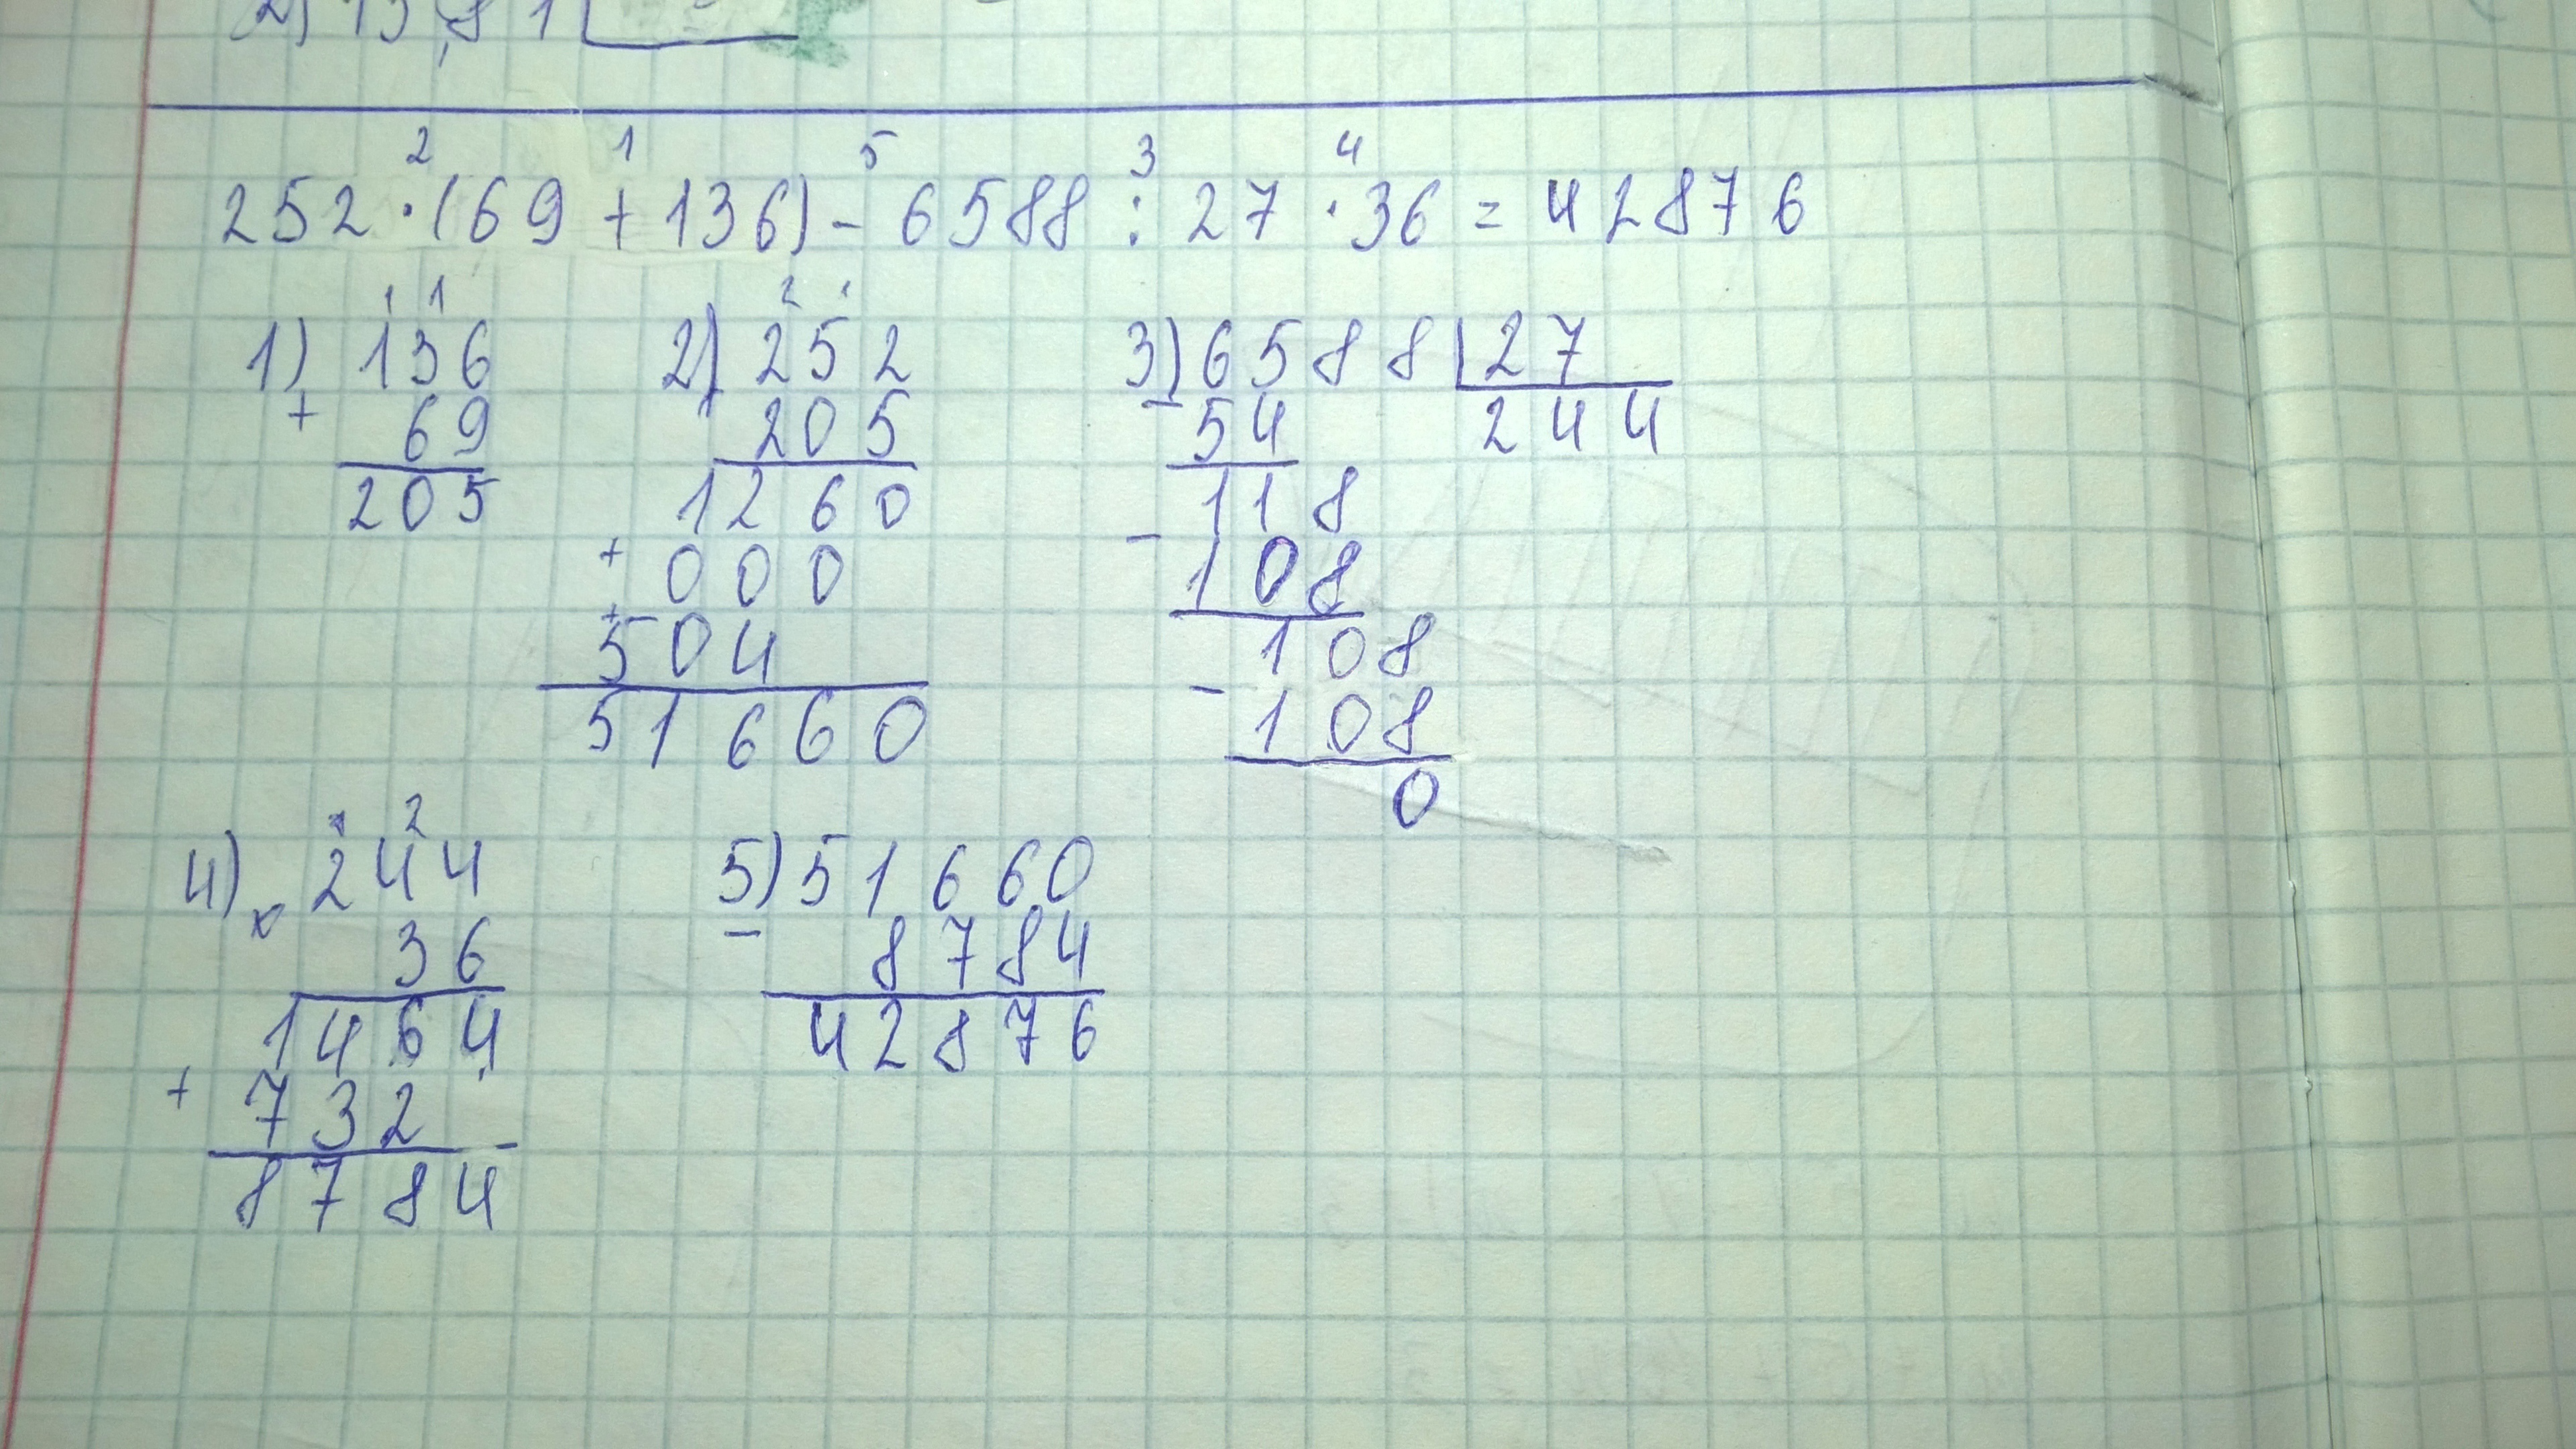 2 1 5 3 4
252 · (69 + 136) - 6588 : 27 · 36 = 42876
1 1
1) 136
+ 69
205
2 1
2) 252
205
1260
+ 000
+ 504
51660
3) 6588 | 27
- 54 244
118
- 108
108
- 108
0
2
4) 244
x 36
1464
+ 732
8784
5) 51660
- 8784
42876